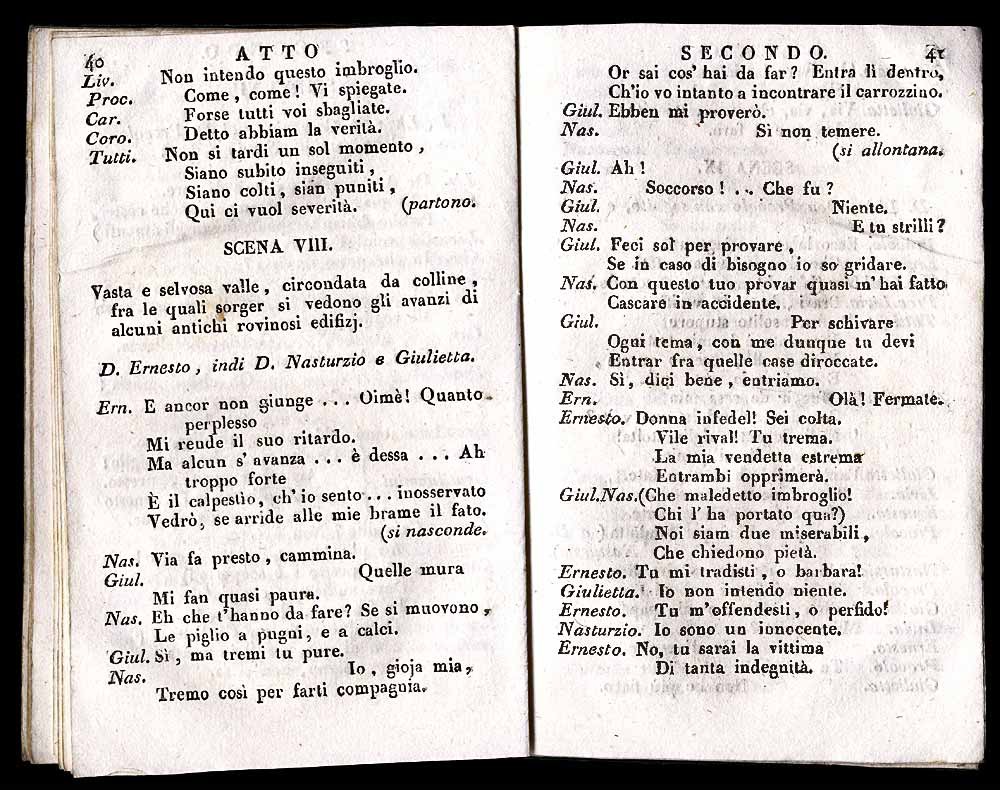 40 ATTO
Liv. Non intendo questo imbroglio.
Proc. Come, come! Vi spiegate.
Car. Forse tutti voi sbagliate.
Coro. Detto abbiam la verità.
Tutti. Non si tardi un sol momento,
Siano subito inseguiti,
Siano colti, sian puniti,
Qui ci vuol severità. (partono.
SCENA VIII.
Vasta e selvosa valle, circondata da colline,
fra le quali sorger si vedono gli avanzi di
alcuni antichi rovinosi edifizj.
D. Ernesto, indi D. Nasturzio e Giulietta.
Ern. E ancor non giunge ... Oimè! Quanto
perplesso
Mi rende il suo ritardo.
Ma alcun s' avanza ... è dessa ... Ah
troppo forte
È il calpestìo, ch' io sento ... inosservato
Vedrò, se arride alle mie brame il fato.
(si nasconde.
Nas. Via fa presto, cammina.
Giul. Quelle mura
Mi fan quasi paura.
Nas. Eh che t'hanno da fare? Se si muovono,
Le piglio a pugni, e a calci.
Giul. Sì, ma tremi tu pure.
Nas. Io, gioja mia,
Tremo così per farti compagnia.
SECONDO. 41
Or sai cos' hai da far? Entra lì dentro,
Ch'io vo intanto a incontrare il carrozzino.
Giul. Ebben mi proverò.
Nas. Sì non temere.
(si allontana.
Giul. Ah!
Nas. Soccorso! ... Che fu?
Giul. Niente.
Nas. E tu strilli?
Giul. Feci sol per provare,
Se in caso di bisogno io so gridare.
Nas. Con questo tuo provar quasi m' hai fatto
Cascare in accidente.
Giul. Per schivare
Ogni tema, con me dunque tu devi
Entrar fra quelle case diroccate.
Nas. Sì, dici bene, entriamo.
Ern. Olà! Fermate.
Ernesto. Donna infedel! Sei colta.
Vile rival! Tu trema.
La mia vendetta estrema
Entrambi opprimerà.
Giul.Nas.(Che maledetto imbroglio!
Chi l' ha portato qua?)
Noi siam due miserabili,
Che chiedono pietà.
Ernesto. Tu mi tradisti, o barbara!
Giulietta. Io non intendo niente.
Ernesto. Tu m'offendesti, o perfido!
Nasturzio. Io sono un innocente.
Ernesto. No, tu sarai la vittima
Di tanta indegnità.